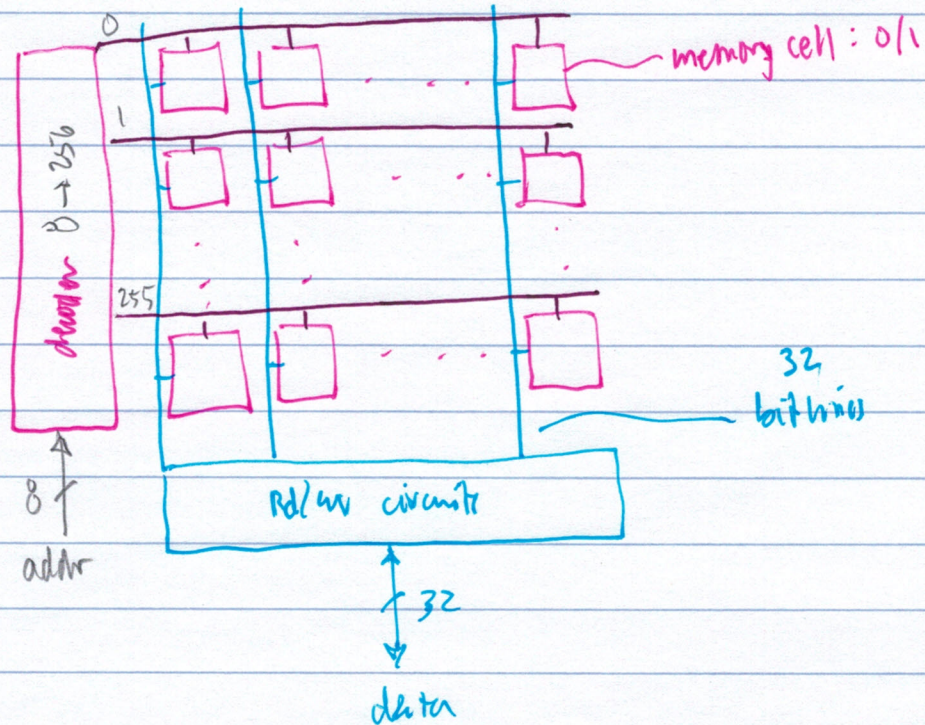 0
memory cell : 0/1
1
decoder 8 → 256
255
32
bit lines
8
addr
Rd/wr circuits
32
data